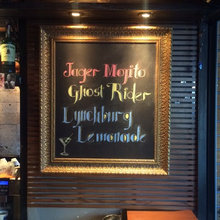 Jager Mojito
Ghost Rider
Lynchburg
Lemonade